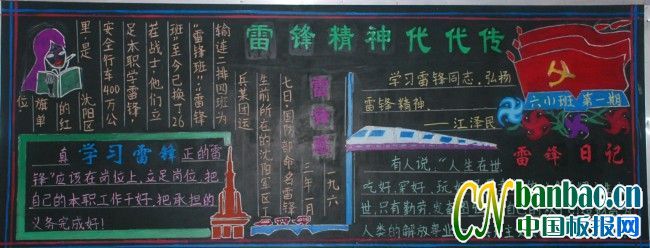 雷锋精神代代传
六小班 第一期
学习雷锋同志,弘扬
雷锋精神
——江泽民
雷锋日记
有人说,“人生在世
吃好,穿好,玩
世,只有勤劳,发奋
人类的解放事业
雷锋班
一九六
三年一月
七日,国防部命名雷锋
生前所在的沈阳军区工
兵某团运
输连二排四班为
“雷锋班”。“雷锋
班”至今已换了26
任战士。他们立
足本职学雷锋,
安全行车400万公
里,是沈阳区
的红
旗单
位。
真学习雷锋正的雷
锋”应该在岗位上,立足岗位,把
自己的本职工作干好,把承担的
义务完成好!
CNbanbao.cn
中国板报网